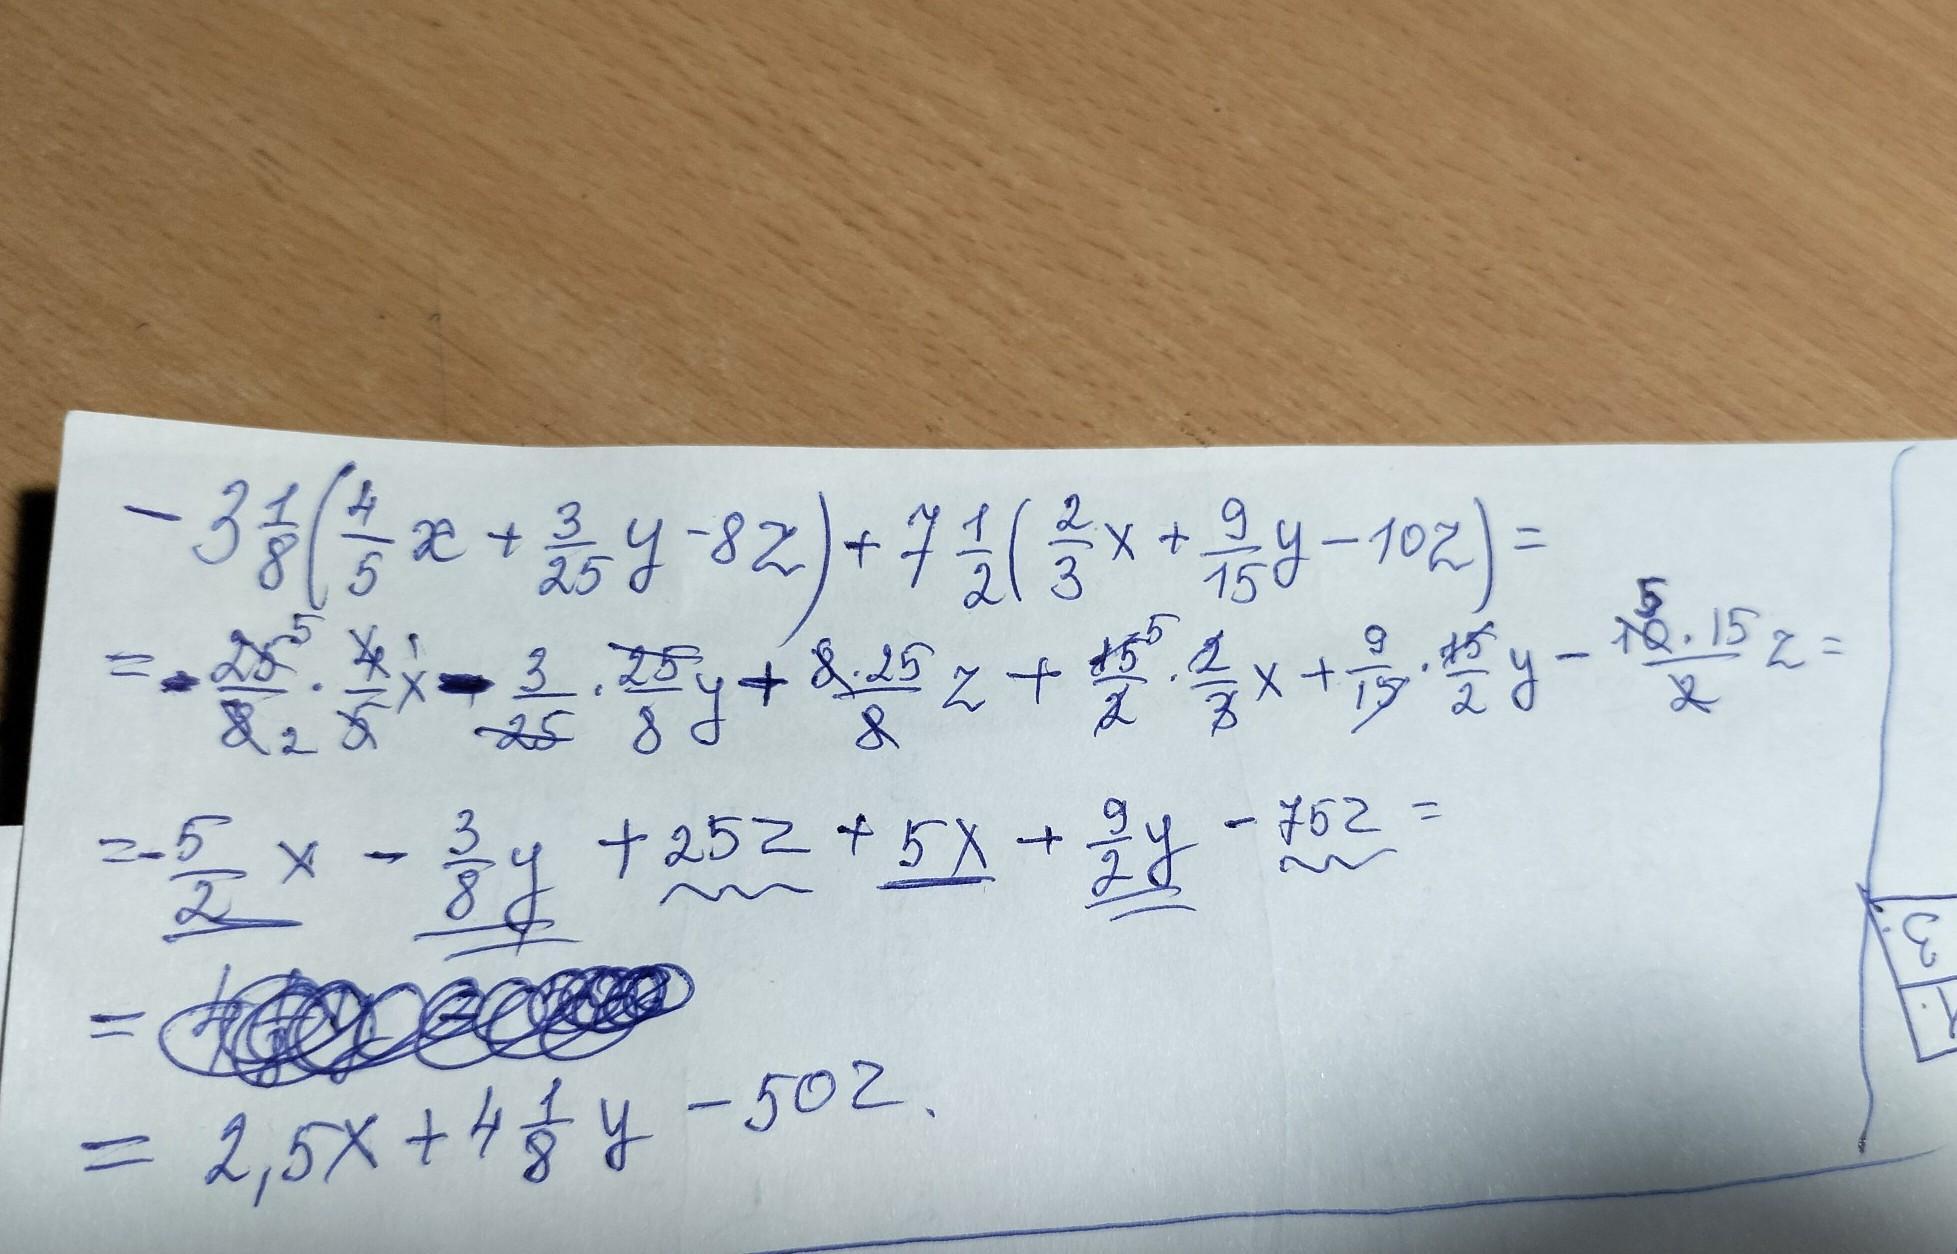 - 3 1/8 ( 4/5 x + 3/25 y - 8z ) + 7 1/2 ( 2/3 x + 9/15 y - 10z ) =
= - 25/8 5 2 · 4/5 1 x - 3/25 · 25/8 y + 8·25/8 z + 15/2 5 · 2/3 x + 9/15 · 15/2 y - 5 10·15/2 z =
= - 5/2 x - 3/8 y + 25z + 5x + 9/2 y - 75z =
=
= 2,5x + 4 1/8 y - 50z.
3